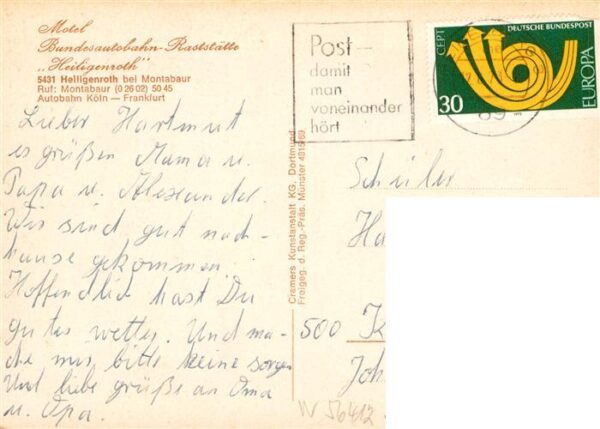 Motel
Bundesautobahn-Raststätte
„Heiligenroth"
5431 Heiligenroth bei Montabaur
Ruf: Montabaur (0 26 02) 50 45
Autobahn Köln — Frankfurt
Lieber Hartmut
es grüßen Mama u.
Papa u. Alexander.
Wir sind gut nach-
hause gekommen.
Hoffendlich hast Du
gutes wetter. Und ma-
che mir bitte keine sorgen
Und liebe grüße an Oma
u. Opa.
Cramers Kunstanstalt KG, Dortmund
Freigeg. d. Reg.-Präs. Münster 4916/69
Post –
damit
man
voneinander
hört
DEUTSCHE BUNDESPOST
CEPT
EUROPA
30
89
Schüler
Ha
500 K
Joh
W 56412